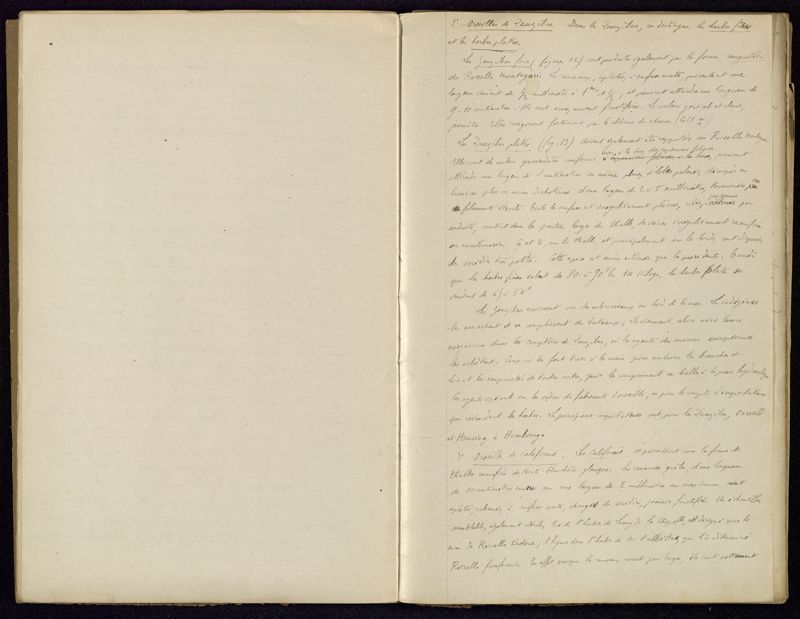 2° Orseilles de Zanzibar Dans les Zanzibar, on distingue les herbes fines
et les herbes plates.
Les Zanzibar fines (figure 12) sont produits également par la forme
du Roccella Montagnei. Les rameaux, aplatis, à surface mate, présentent une
largeur variant de 1/2 millimètre à 1 mm et 1/2, et peuvent atteindre une longueur de
9-10 centimètres. Ils sont assez souvent fructifères. La couleur générale est claire,
jaunâtre. Elles rougissent fortement par le chlorure de chaux.
Les Zanzibar plates (fig. 13) doivent également être rapportées au Roccella Montagnei.
Elles sont de couleur grisonnâtre uniforme, pouvant
atteindre une largeur de 2 centimètres ou même plus, découpées en
lanières plus ou moins d'une largeur de 2 à 5 millimètres, terminées
filaments étroits. Toute la surface est irrégulièrement plissée, ridée, parcourue par
endroits, surtout dans les parties larges du thalle, de veines irrégulièrement ramifiées
ou anastomosées. Çà et là, sur le thalle, et principalement sur les bords, sont disposées
des sorédies très petites. Cette espèce est moins estimée que la précédente. Tandis
que les herbes fines valent de 80 à 90f les 100 kilogs, les herbes plates se
vendent de 45 à 50f.
Les Zanzibar croissent sur des arbrisseaux au bord de la mer. Les indigènes
les arrachent et en remplissent des bateaux; ils viennent alors avec leurs
cargaisons dans les comptoirs de Zanzibar, où les agents des maisons européennes
les achètent. Ceux-ci les font trier à la main pour enlever les branches de
bois et les impuretés de toutes sortes, puis les compriment en balles à la presse hydraulique.
Les agents opèrent sur les ordres des fabricants d'orseille, ou pour le compte d'importateurs
qui revendent les herbes. Les principaux importateurs sont, pour les Zanzibar,
et Hansing à Hambourg.
3° Orseille de Californie. Les Californie se présentent sous la forme de
thalles ramifiés de teint blanchâtre glauque. Les rameaux grêles, d'une longueur
de 10 centimètres environ sur une largeur de 2 millimètres au maximum sont
aplatis, rubanés, à surface mate, chargés de sorédies, jamais fructifiés. Un échantillon
semblable, également stérile, tiré de l'herbier de Lamy de la Chapelle, est désigné sous le
nom de Roccella; il figure dans l'herbier de M. l'abbé Hue, qui l'a déterminé
Roccella fuciformis. En effet quoique les rameaux soient peu larges, ils sont nettement